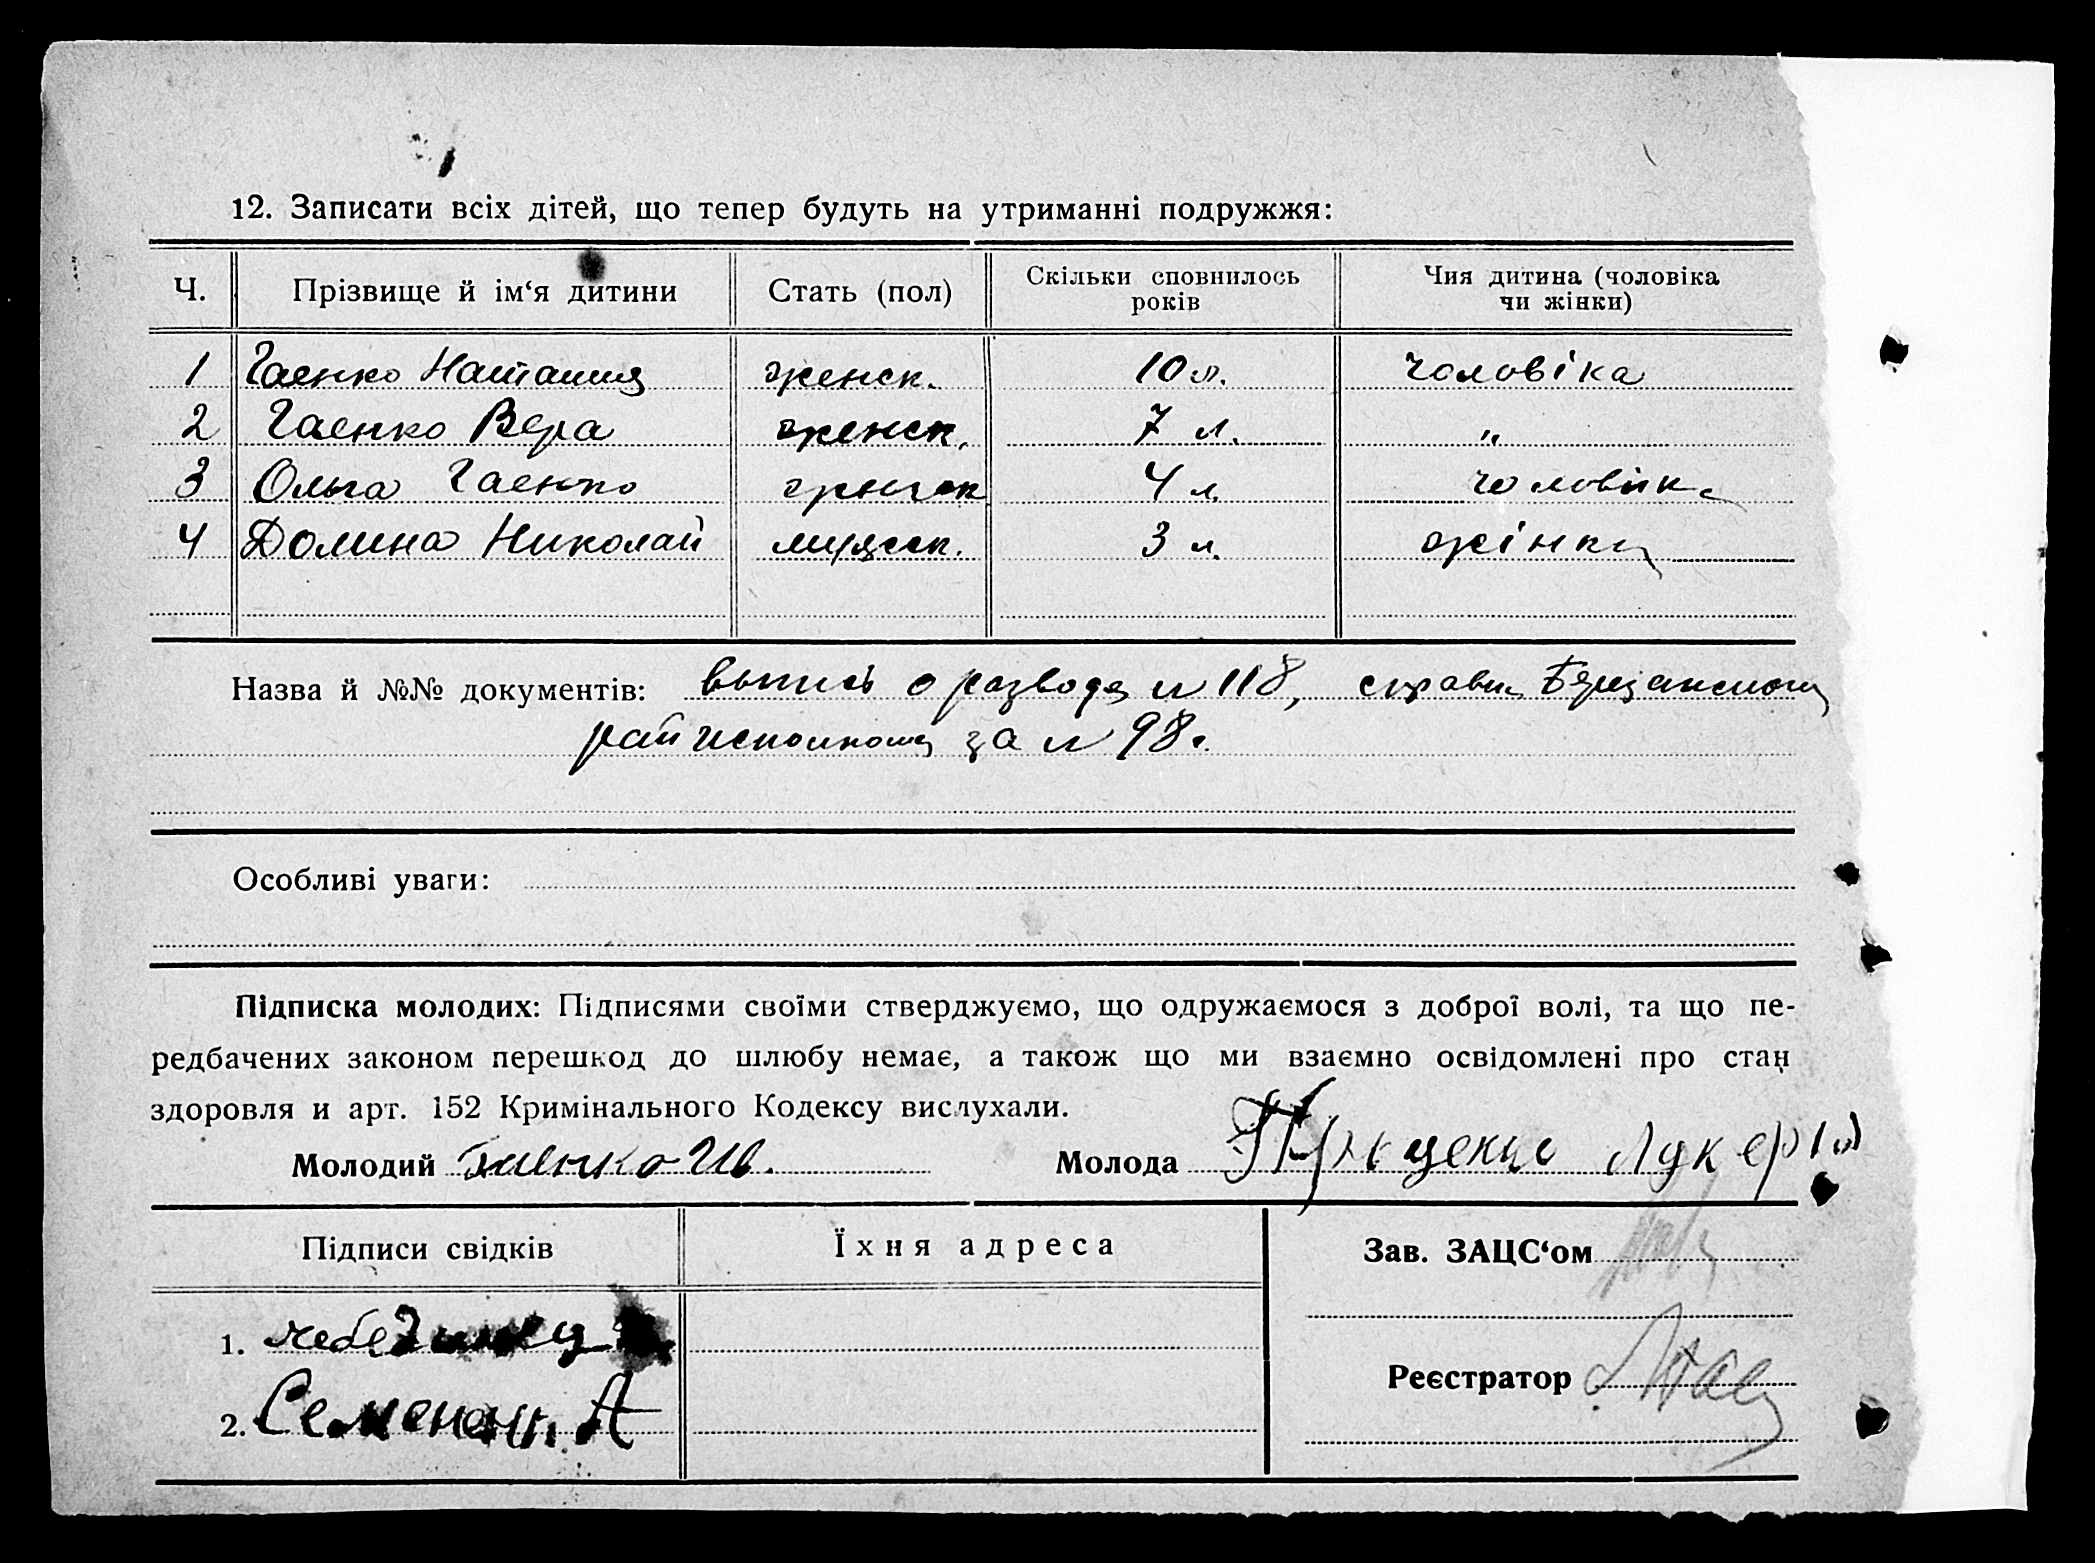 12. Записати всіх дітей, що тепер будуть на утриманні подружжя:
Ч. Прізвище й ім‘я дитини Стать (пол) Скільки сповнилось років Чия дитина (чоловіка чи жінки)
1 Гаенко Наталия женск. 10 л. чоловіка
2 Гаенко Вера женск. 7 л. "
3 Ольга Гаенко женск 4 л. чоловіка
4 Долина Николай мужск. 3 л. жінки
Назва й №№ документів: выпись о разводе № 118, справка Березанского
райисполкома за № 98.
Особливі уваги:
Підписка молодих: Підписями своїми стверджуємо, що одружаємося з доброї волі, та що пе-
редбачених законом перешкод до шлюбу немає, а також що ми взаємно освідомлені про стан
здоровля и арт. 152 Кримінального Кодексу вислухали.
Молодий Гаенко Молода Лукерія
Підписи свідків Їхня адреса Зав. ЗАЦС‘ом
1.
Реєстратор
2. А